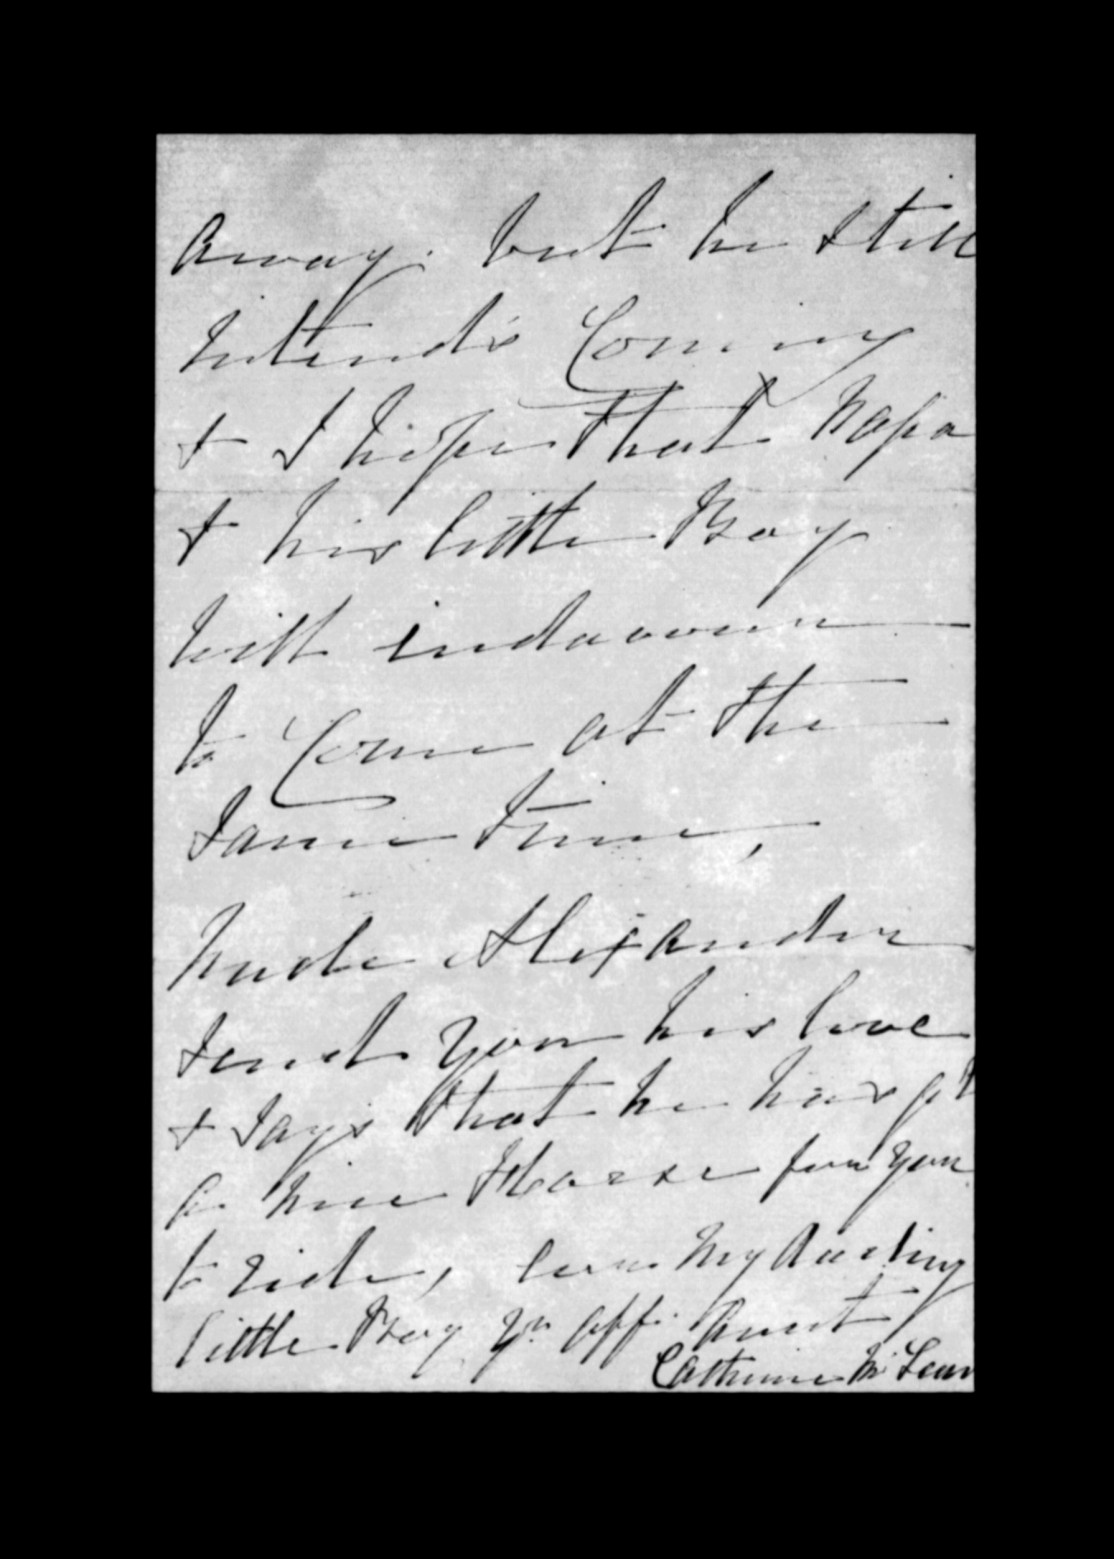 away. but he still
intends Coming
& I hope that Papa
& his little Boy
will indeavour
to Come at the
Same time,
Uncle Alexander
send you his love
& says that he has got
a nice Horse for you
to ride, ever My darling
little Boy yr aff. Aunt
Catherine McLean